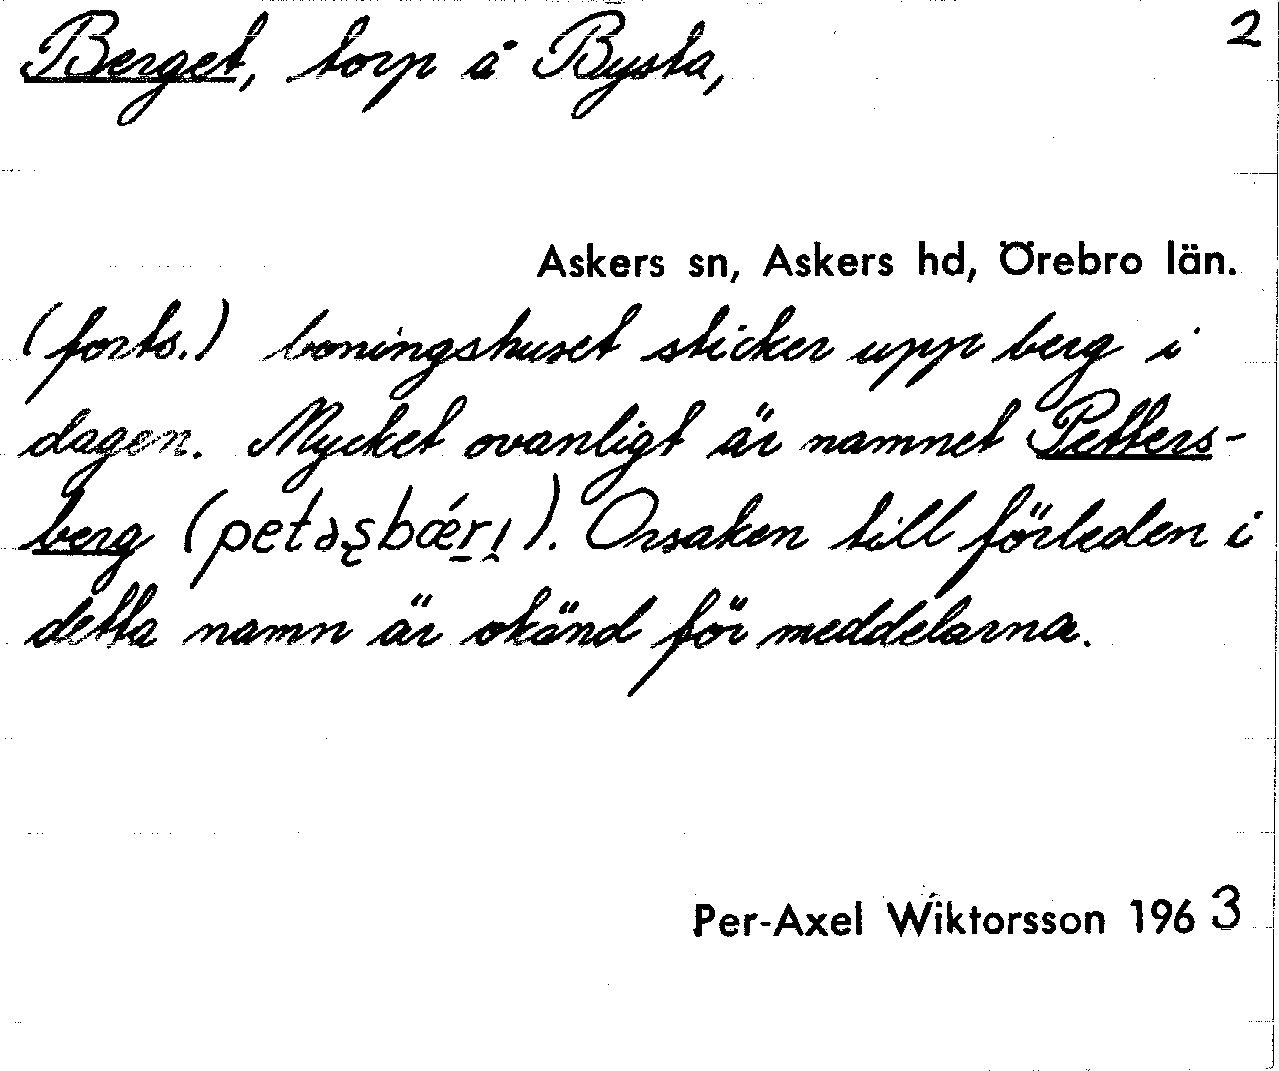 Berget, torp å Bysta, 2
Askers sn, Askers hd, Örebro län.
(forts.) boningshuset sticker upp berg i
dagen. Mycket ovanligt är namnet Petters-
berg (petəʂbǽrı). Orsaken till förleden i
detta namn är okänd för meddelarna.
Per-Axel Wiktorsson 1963